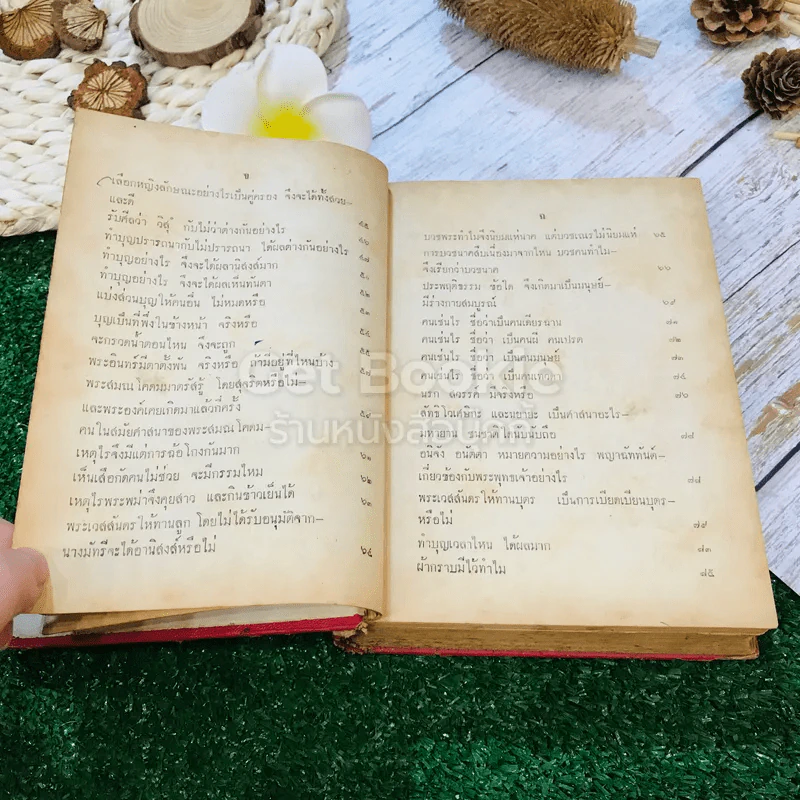 ข
เลือกหญิงลักษณะอย่างไรเป็นคู่ครอง จึงจะได้ทั้งสวย-
และดี ๔๕
รับศีลว่า วิสุํ กับไม่ว่าต่างกันอย่างไร ๔๖
ทำบุญปรารถนากับไม่ปรารถนา ได้ผลต่างกันอย่างไร ๔๗
ทำบุญอย่างไร จึงจะได้ผลานิสงส์มาก ๕๐
ทำบุญอย่างไร จึงจะได้ผลเห็นทันตา ๕๒
แบ่งส่วนบุญให้คนอื่น ไม่หมดหรือ
บุญเป็นที่พึ่งในข้างหน้า จริงหรือ
จะกรวดน้ำตอนไหน จึงจะถูก
พระอินทร์มีตาตั้งพัน จริงหรือ ถ้ามีอยู่ที่ไหนบ้าง ๕๗
พระสมณโคดมมาตรัสรู้ โดยสุจริตหรือไม่-
และพระองค์เคยเกิดมาแล้วกี่ครั้ง
คนในสมัยศาสนาของพระสมณโคดม-
เหตุไรจึงมีแต่การฉ้อโกงกันมาก ๖๑
เห็นเลือกตัดคนไม่ช่วย จะมีกรรมไหม ๖๒
เหตุไรพระพม่าจึงคุยสาว และกินข้าวเย็นได้ ๖๓
พระเวสสันดรให้ทานลูก โดยไม่ได้รับอนุมัติจาก-
นางมัทรีจะได้อานิสงส์หรือไม่ ๖๔
ค
บวชพระทำไมจึงนิยมแห่นาค แต่บวชเณรไม่นิยมแห่ ๖๕
การบวชนาคสืบเนื่องมาจากไหน บวชคนทำไม-
จึงเรียกว่าบวชนาค ๖๖
ประพฤติธรรม ข้อใด จึงเกิดมาเป็นมนุษย์-
มีร่างกายสมบูรณ์ ๖๙
คนเช่นไร ชื่อว่าเป็นคนเดียรฉาน ๗๑
คนเช่นไร ชื่อว่า เป็นคนผี คนเปรต ๗๒
คนเช่นไร ชื่อว่า เป็นคนมนุษย์ ๗๓
คนเช่นไร ชื่อว่า เป็นคนเทวดา ๗๔
นรก สวรรค์ มีจริงหรือ ๗๖
ลัทธิโวเศษิกส์ และนยายะ เป็นศาสนาอะไร-
มหายาน ชนชาติใดนับถือ ๗๗
อนิจจัง อนัตตา หมายความอย่างไร พญานัททันต์-
เกี่ยวข้องกับพระพุทธเจ้าอย่างไร ๗๗
พระเวสสันดรให้ทานบุตร เป็นการเบียดเบียนบุตร-
หรือไม่ ๗๙
ทำบุญเวลาไหน ได้ผลมาก ๘๓
ผ้ากราบมีไว้ทำไม ๘๕
Get Bookie
ร้านหนังสือนัดกั๊